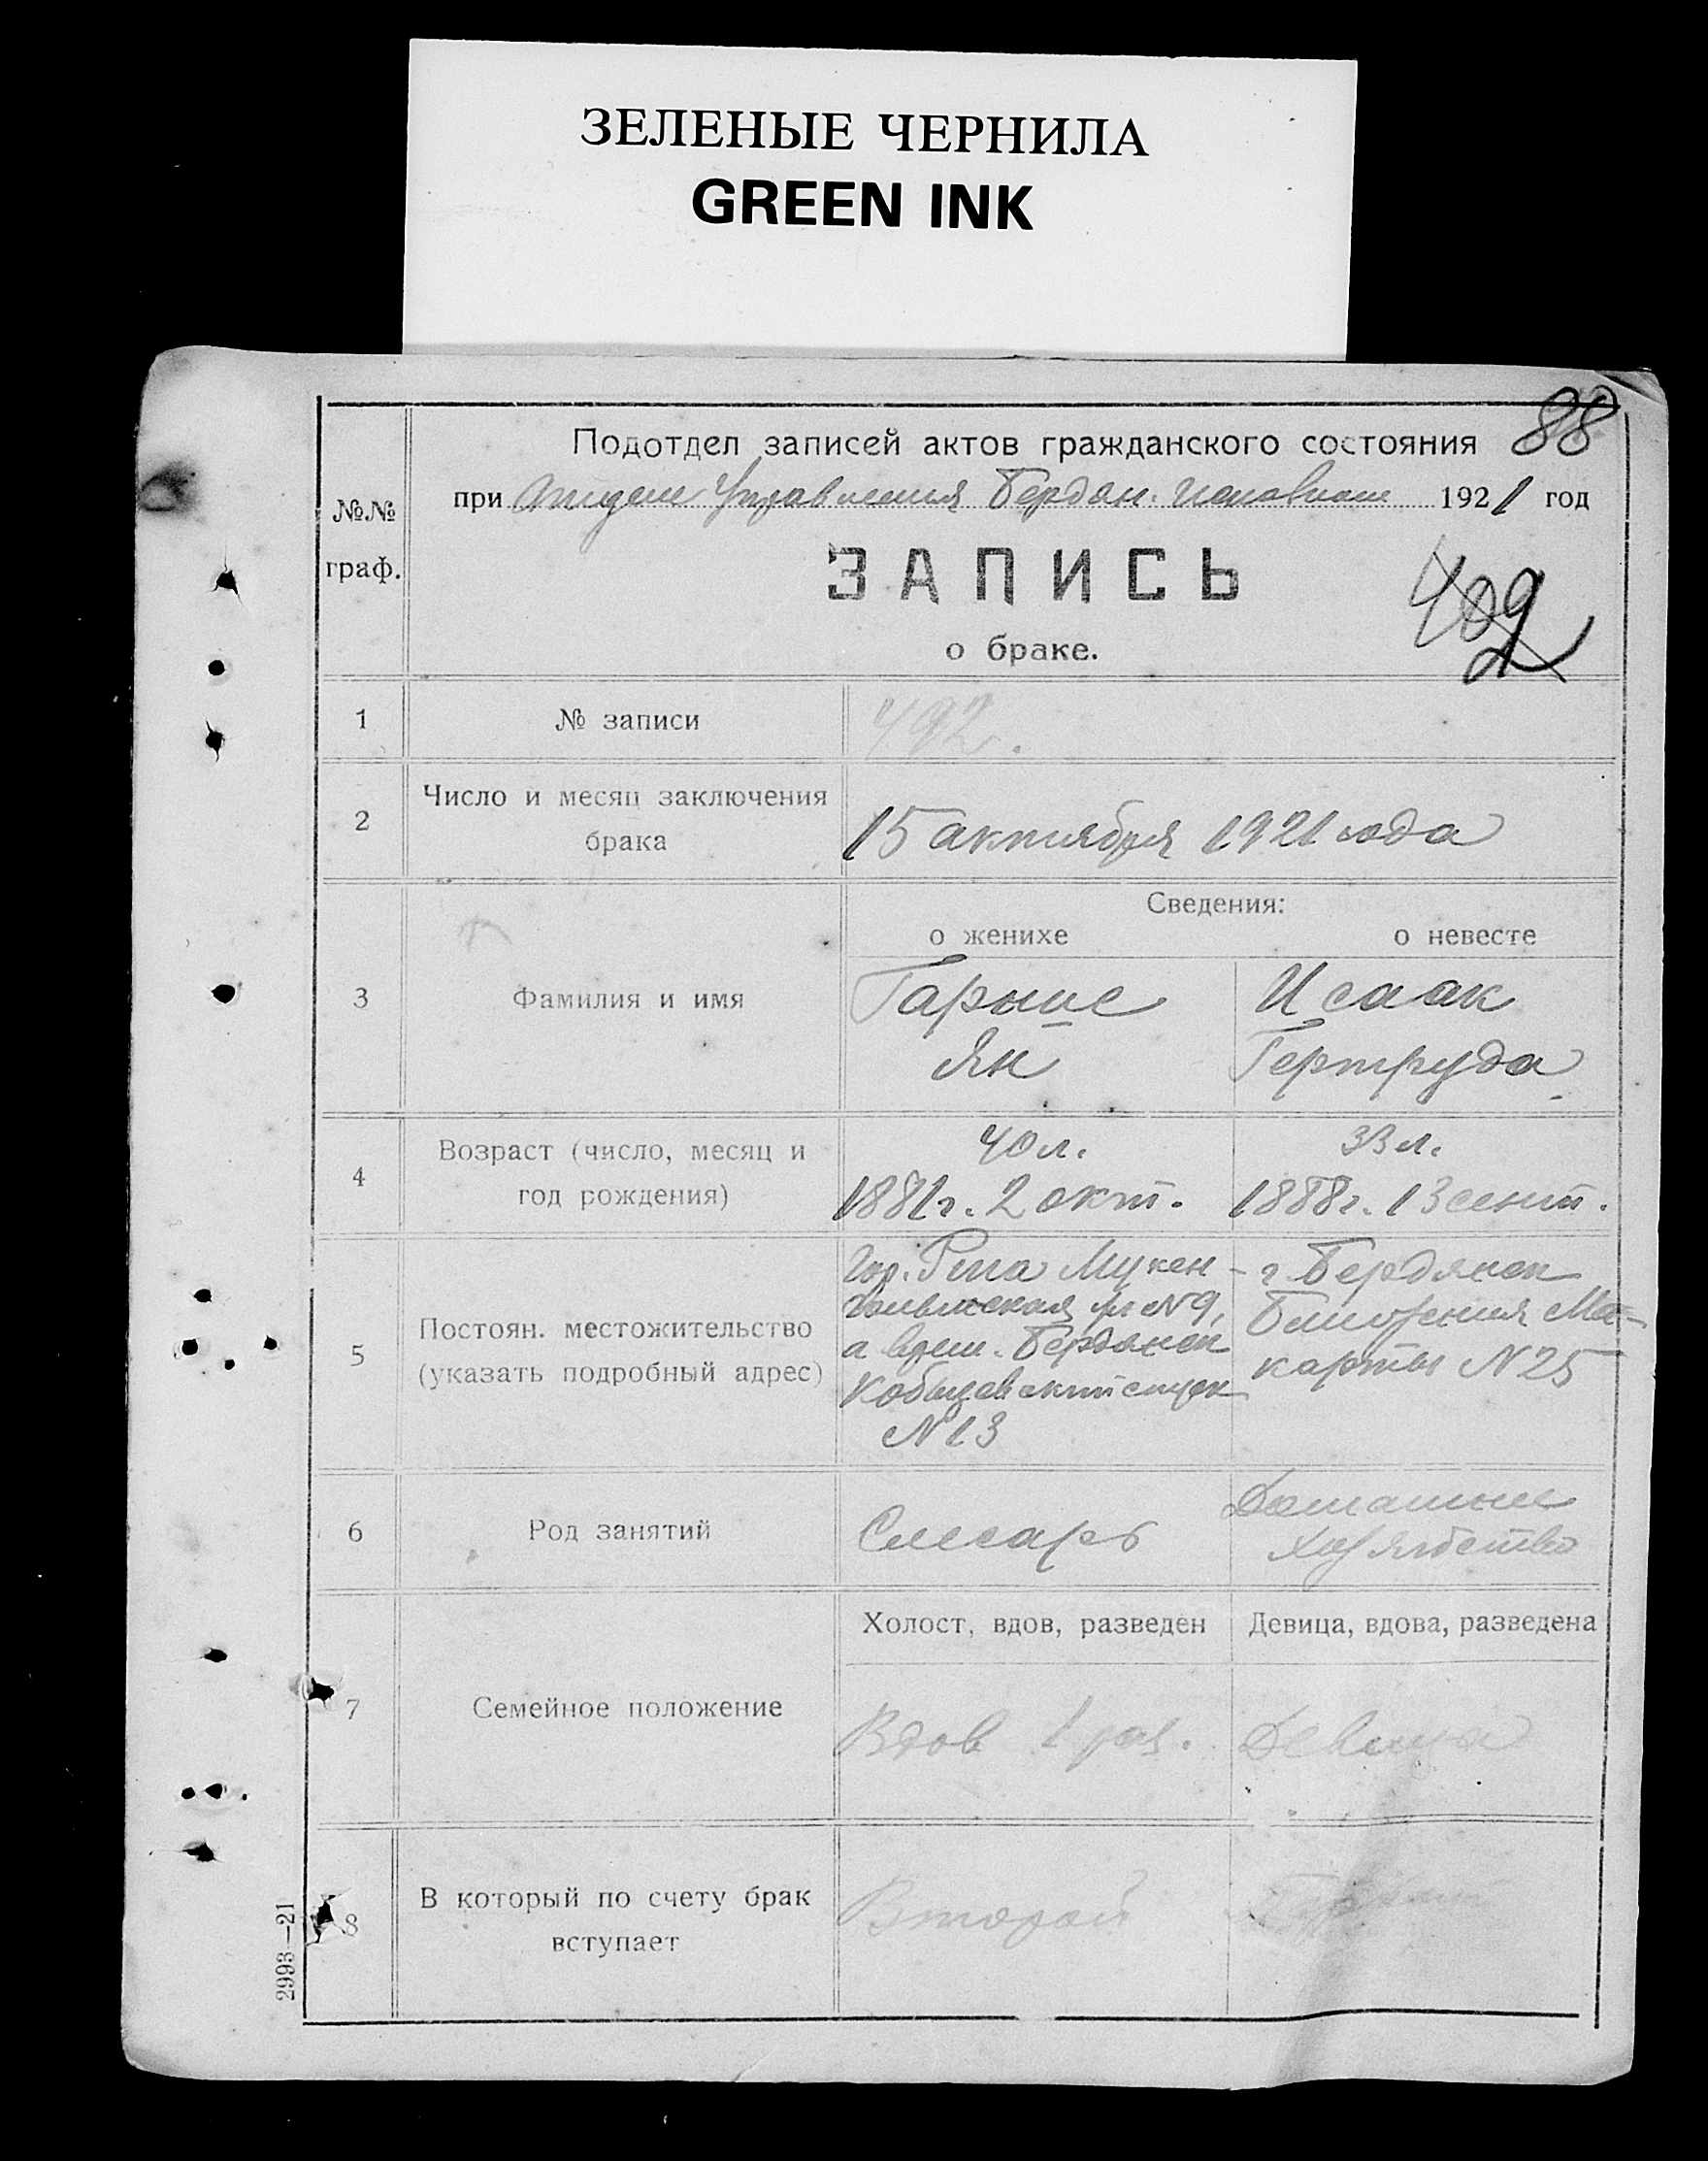 ЗЕЛЕНЫЕ ЧЕРНИЛА
GREEN INK
88
Подотдел записей актов гражданского состояния
при Отделе Управления Бердян. 1921 год
№№ граф.
ЗАПИСЬ
о браке.
409
1 № записи 492.
2 Число и месяц заключения брака 15 октября 1921 года
Сведения:
о женихе о невесте
3 Фамилия и имя
Гарнис Исаак
Ян Гертруда
4 Возраст (число, месяц и год рождения)
40 л. 33 л.
1881 г. 2 окт. 1888 г. 13 сент.
5 Постоян. местожительство (указать подробный адрес)
Гор. Рига Мукен- г. Бердянск
ул N 9,
а врем. Бердянск карты N 25
спуск
N 13
6 Род занятий
Слесарь Домашнее
хозяйство
Холост, вдов, разведен Девица, вдова, разведена
7 Семейное положение
Вдов 1 раз. Девица
8 В который по счету брак вступает
Второй Первый
2993—21